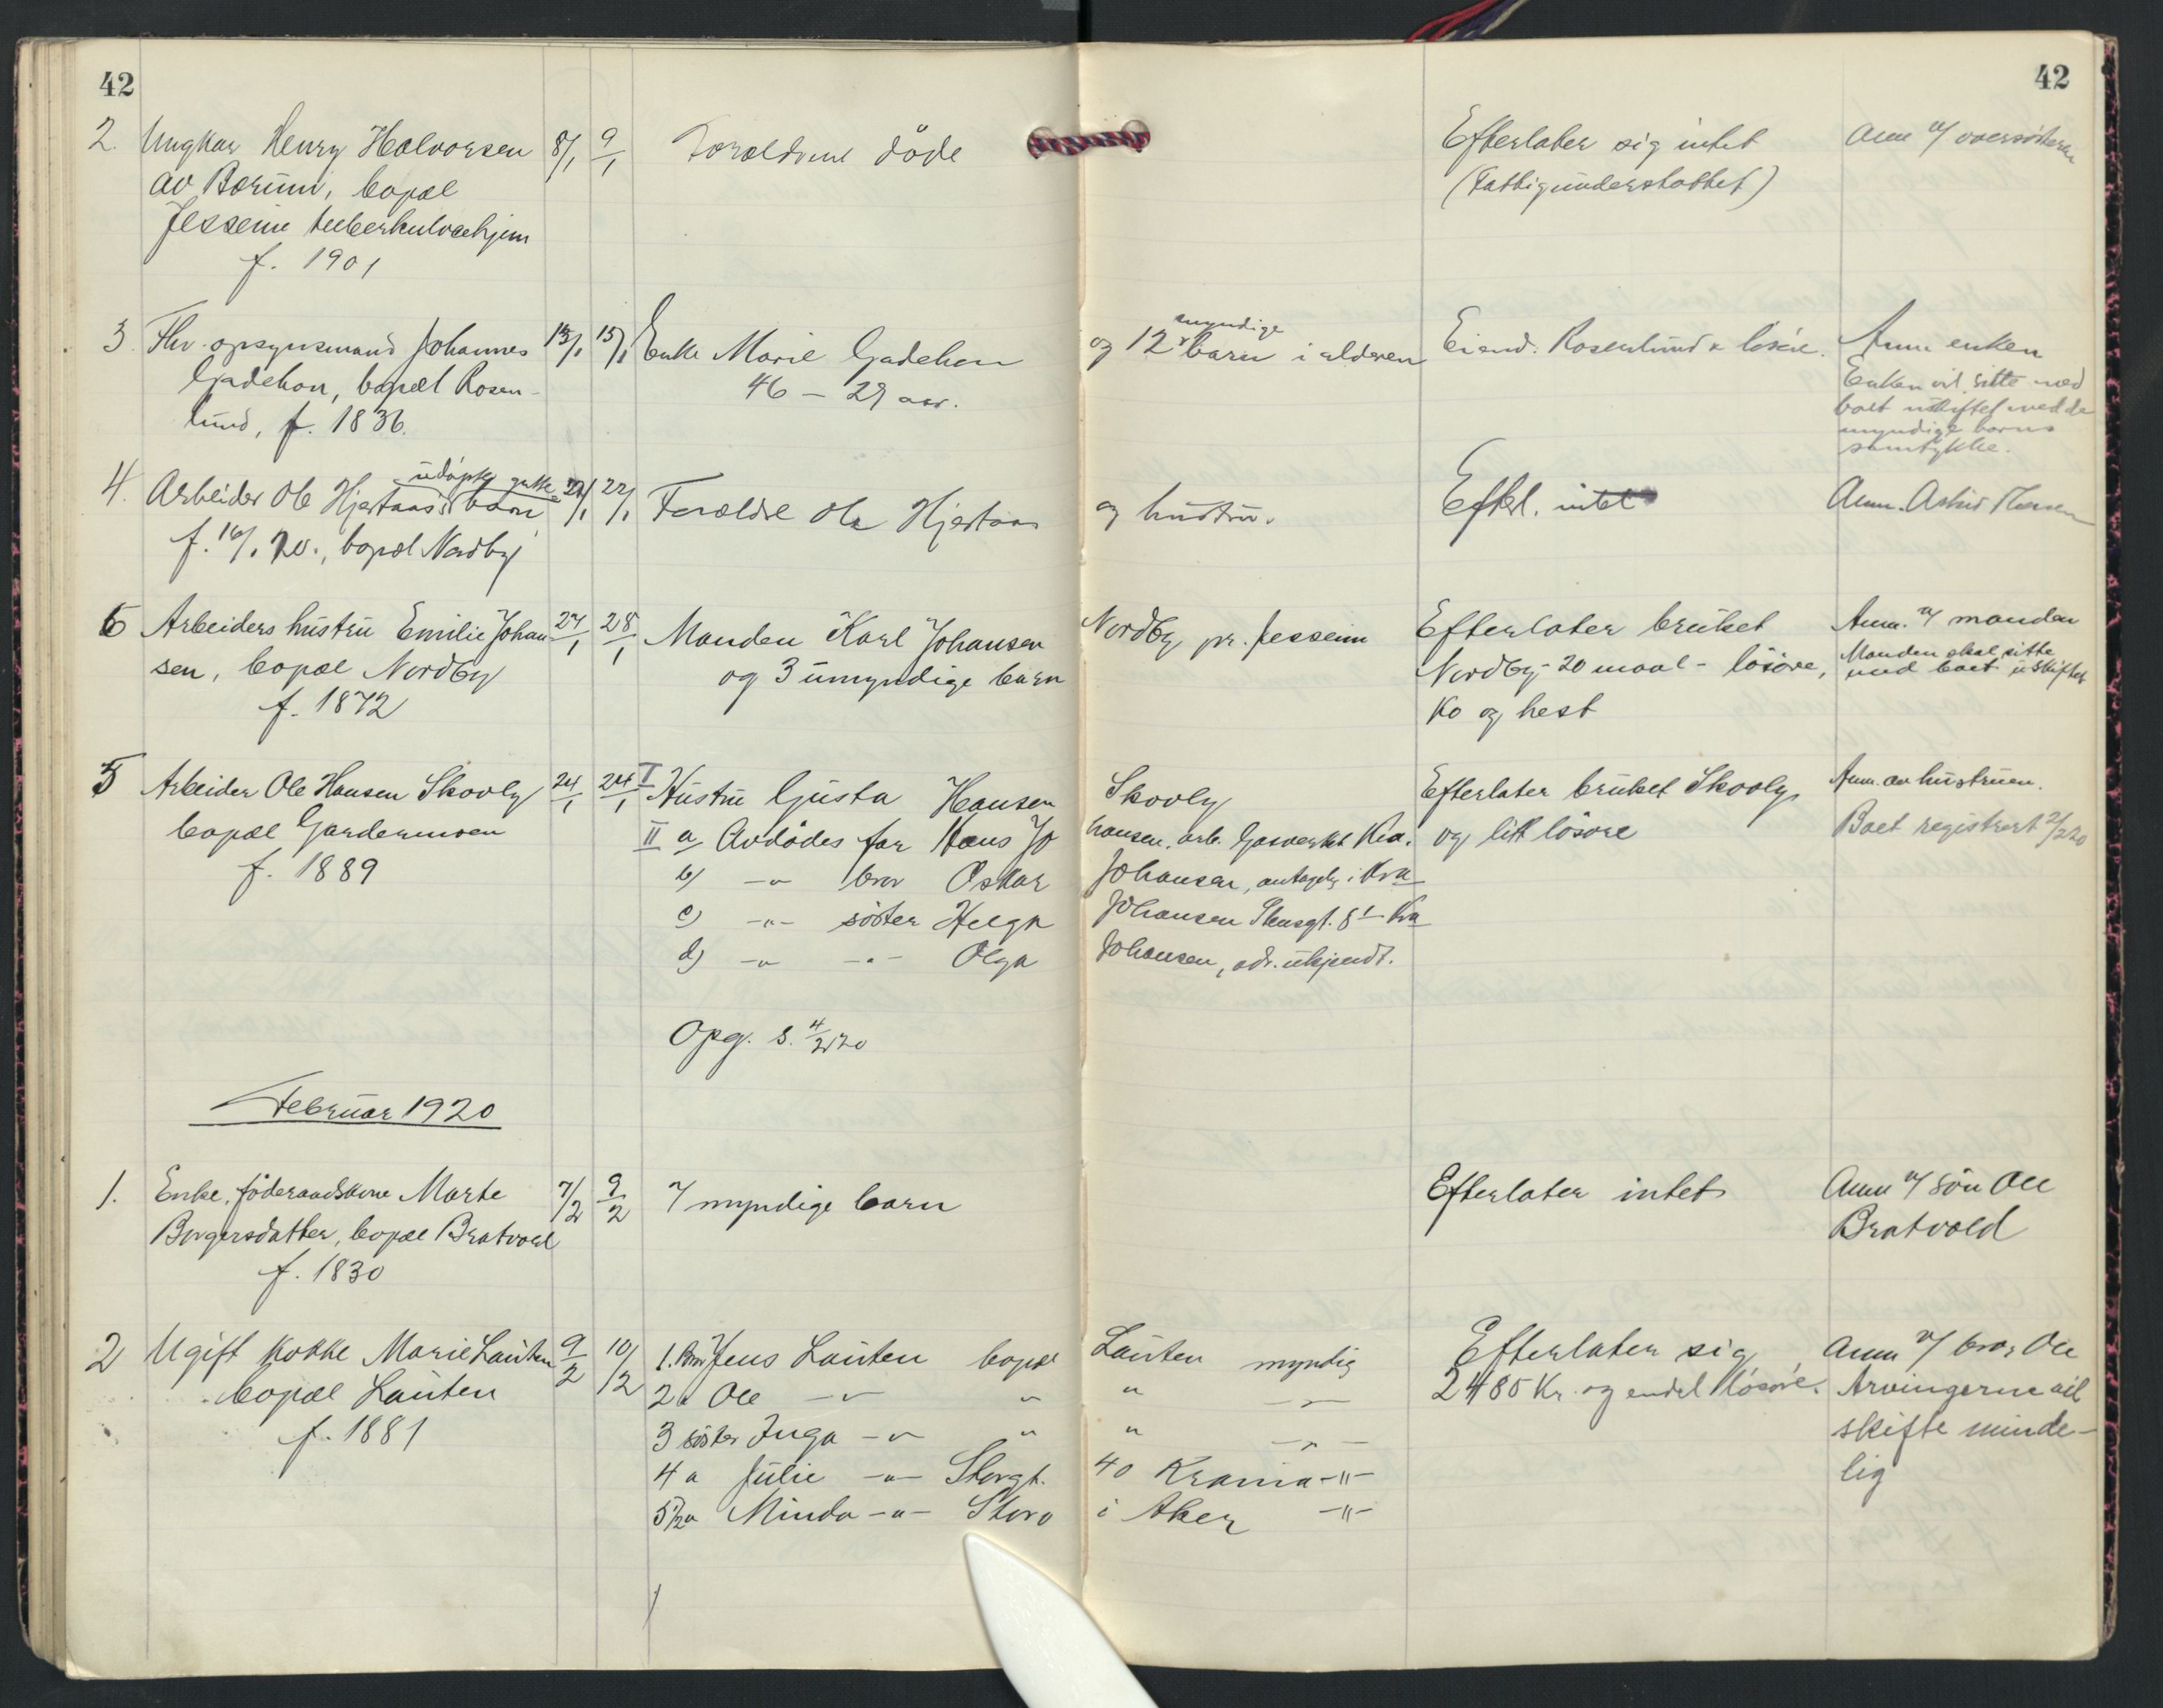 42
42
2. Ungkar Henry Halvorsen 8/1 9/1 Forældrene döde Efterlater sig intet Anm v/ oversösteren
av Bærum, bopæl (Fattigunderstøttet)
Jesseim tuberkulosehjem
f. 1901
3. Fhv. opsynsmand Johannes 13/1 15/1 Enke Marie Gadehon og 12 myndige barn i alderen Eiend. Rosenlund & lösöre. Anm enken
Gadehon, bopæl Rosen- 46 – 29 aar. Enken vil sitte med
lund, f. 1836. boet uskiftet med de
myndige barns
samtykke.
4. Arbeider Ole Hjertaas's udöpte gutte barn 22/1 Forældre Ole Hjertaas og hustru. Efterl. intet Anm. Astrid
f. 16/1 20., bopæl Nordby
6 Arbeiders hustru Emilie Johan 24/1 28/1 Manden Karl Johansen Nordby pr. Jesseim Efterlater bruket Anm. v/ manden
sen, bopæl Nordby og 3 umyndige barn Nordby - 20 maal - lösöre, Manden skal sitte
f. 1872 ko og hest med boet uskiftet
5 Arbeider Ole Hansen Skovly 24/1 24/1 I Hustru Gusta Hansen Skovly Efterlater bruket Skovly Anm. av hustruen.
bopæl Gardermoen II a Avdödes far Hans Jo hansen, arb. Gasverket Kra. og litt lösöre Boet registrert 2/2 20
f. 1889 b) -"- bror Oskar Johansen, antagelig i Kra
c) -"- söster Helga Johansen Stensgt. 8 I Kra
d) -"- -"- Olga Johansen, adr. ukjendt.
Opg. s. 4/2 20
Februar 1920
1. Enke, föderaadskone Marte 7/2 9/2 7 myndige barn Efterlater intet Anm v/ sön Ole
Borgersdatter, bopæl Bratvold Bratvold
f. 1830
2 Ugift kokke Marie Lauten 9/2 10/2 1. Bror Jens Lauten bopæl Lauten myndig Efterlater sig Anm v/ bror Ole
bopæl Lauten 2 " Ole -"- " " -"- 2485 Kr. og endel lösöre. Arvingerne vil
f. 1881 3 söster Inga -"- " " -"- skifte minde-
4 " Julie -"- Storgt. 40 Krania -"- lig
5 1/2 " Minda -"- Storo i Aker -"-